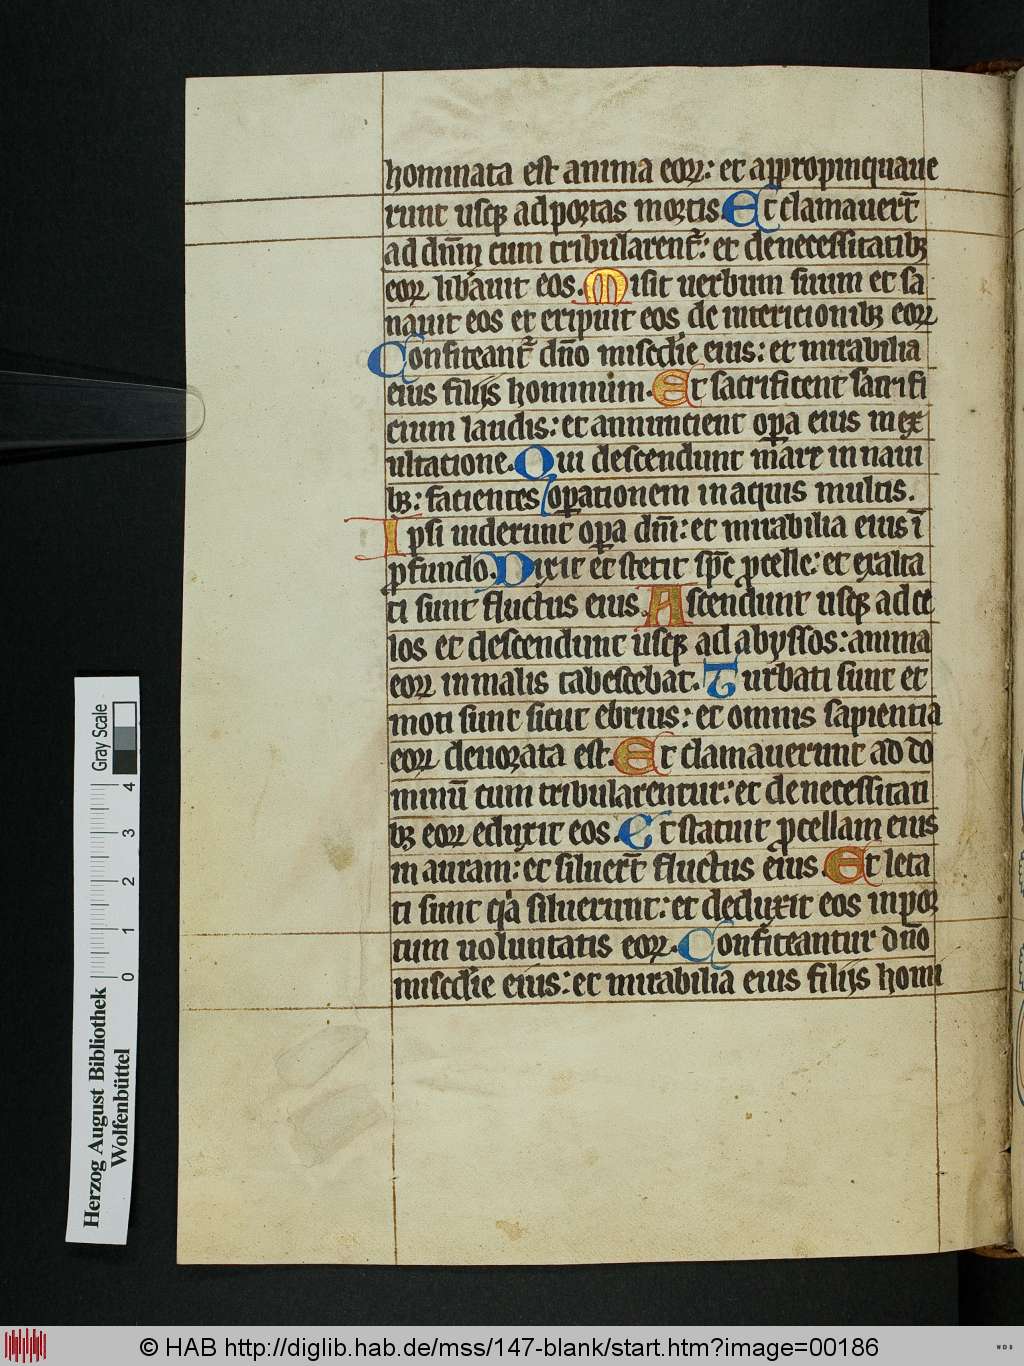 hominata est anima eoꝝ: et appropinquaue
runt usqꝫ ad portas mortis. Et clamauerūt
ad dn̄m cum tribularent᷑: et de necessitatibꝫ
eoꝝ libauit eos. Misit uerbum suum et sa
nauit eos et eripuit eos de interitionibꝫ eoꝝ
Confiteant᷑ dn̄o misc̄die eius: et mirabilia
eius filijs hominum. Et sacrificent sacrifi
cium laudis: et annuncient oꝑa eius in ex
ultatione. Qui descendunt mare in naui
bꝫ: facientes oꝑationem in aquis multis.
Ipsi uiderunt oꝑa dn̄i: et mirabilia eius ī
ꝓfundo. Dixit et stetit sp̄c ꝓcelle: et exalta
ti sunt fluctus eius. Ascendunt usqꝫ ad ce
los et descendunt usqꝫ ad abyssos: anima
eoꝝ in malis tabescebat. Turbati sunt et
moti sunt sicut ebrius: et omnis sapientia
eoꝝ deuorata est. Et clamauerunt ad do
minū cum tribularentur: et de necessitati
bꝫ eoꝝ eduxit eos. Et statuit ꝓcellam eius
in auram: et siluert̄ fluctus eius. Et leta
ti sunt qꝛ siluerunt: et deduxit eos in por
tum uoluntatis eoꝝ. Confiteantur dn̄o
misc̄die eius: et mirabilia eius filijs homi
Herzog August Bibliothek
Wolfenbüttel
0 1 2 3 4
Gray Scale
© HAB http://diglib.hab.de/mss/147-blank/start.htm?image=00186